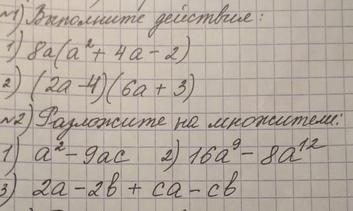 №1) Выполните действия:
1) 8a(a² + 4a - 2)
2) (2a - 4)(6a + 3)
№2) Разложите на множители:
1) a² - 9ac 2) 16a⁹ - 8a¹²
3) 2a - 2b + ca - cb